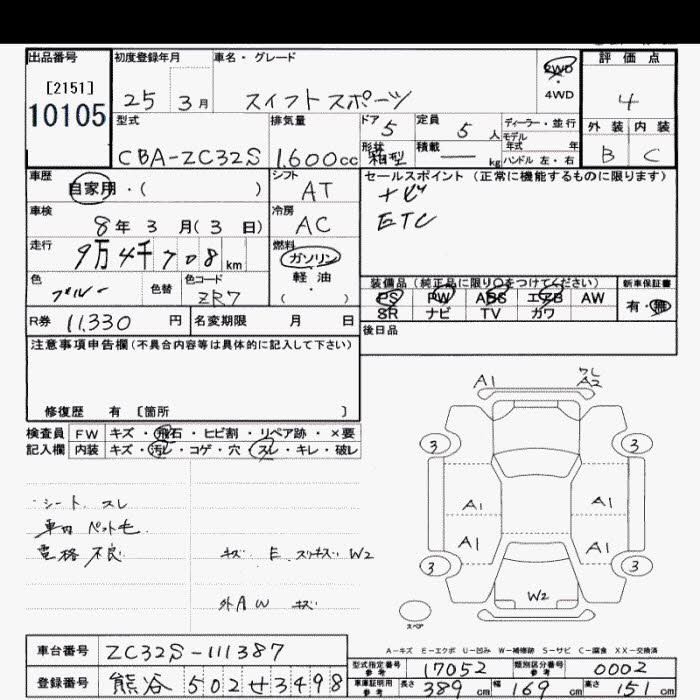 出品番号
[2151]
10105
初度登録年月
25 3月
車名・グレード
スイフトスポーツ
2WD
・
4WD
評価点
4
外装 内装
B C
型式
CBA-ZC32S
排気量
1.600cc
ドア 5
定員 5人
形状 箱型
積載 — kg
ディーラー・並行
モデル
年式 年
ハンドル 左・右
車歴
自家用・( )
シフト
AT
セールスポイント(正常に機能するものに限ります)
ナビ
ETC
車検
8年 3月(3日)
冷房
AC
走行
9万4千708km
燃料
ガソリン
軽・油
( )
色
ブルー
色替
色コード
ZR7
装備品(純正品に限り○をつけてください)
PS PW ABS エアB AW
SR ナビ TV カワ
新車保証書
有・無
R券 11,330円
名変期限 月 日
後日品
注意事項申告欄(不具合内容等は具体的に記入して下さい)
修復歴 有 [箇所 ]
検査員
記入欄
FW キズ・飛石・ヒビ割・リペア跡・×要
内装 キズ・汚レ・コゲ・穴・スレ・キレ・破レ
シート スレ
車内 ペット毛
電格 不良
キズ E スリキズ W2
外AW キズ
A1
ワレ
A2
3 3
A1 A1
A1 A1
3 3
W2
スペア
A-キズ E-エクボ U-凹み W-補修跡 S-サビ C-腐食 XX-交換済
車台番号 ZC32S-111387
登録番号 熊谷 502 せ 3498
型式指定番号
参考
17052
類別区分番号
参考
0002
車庫証明用
参考
長さ 389cm 幅 169cm 高さ 151cm